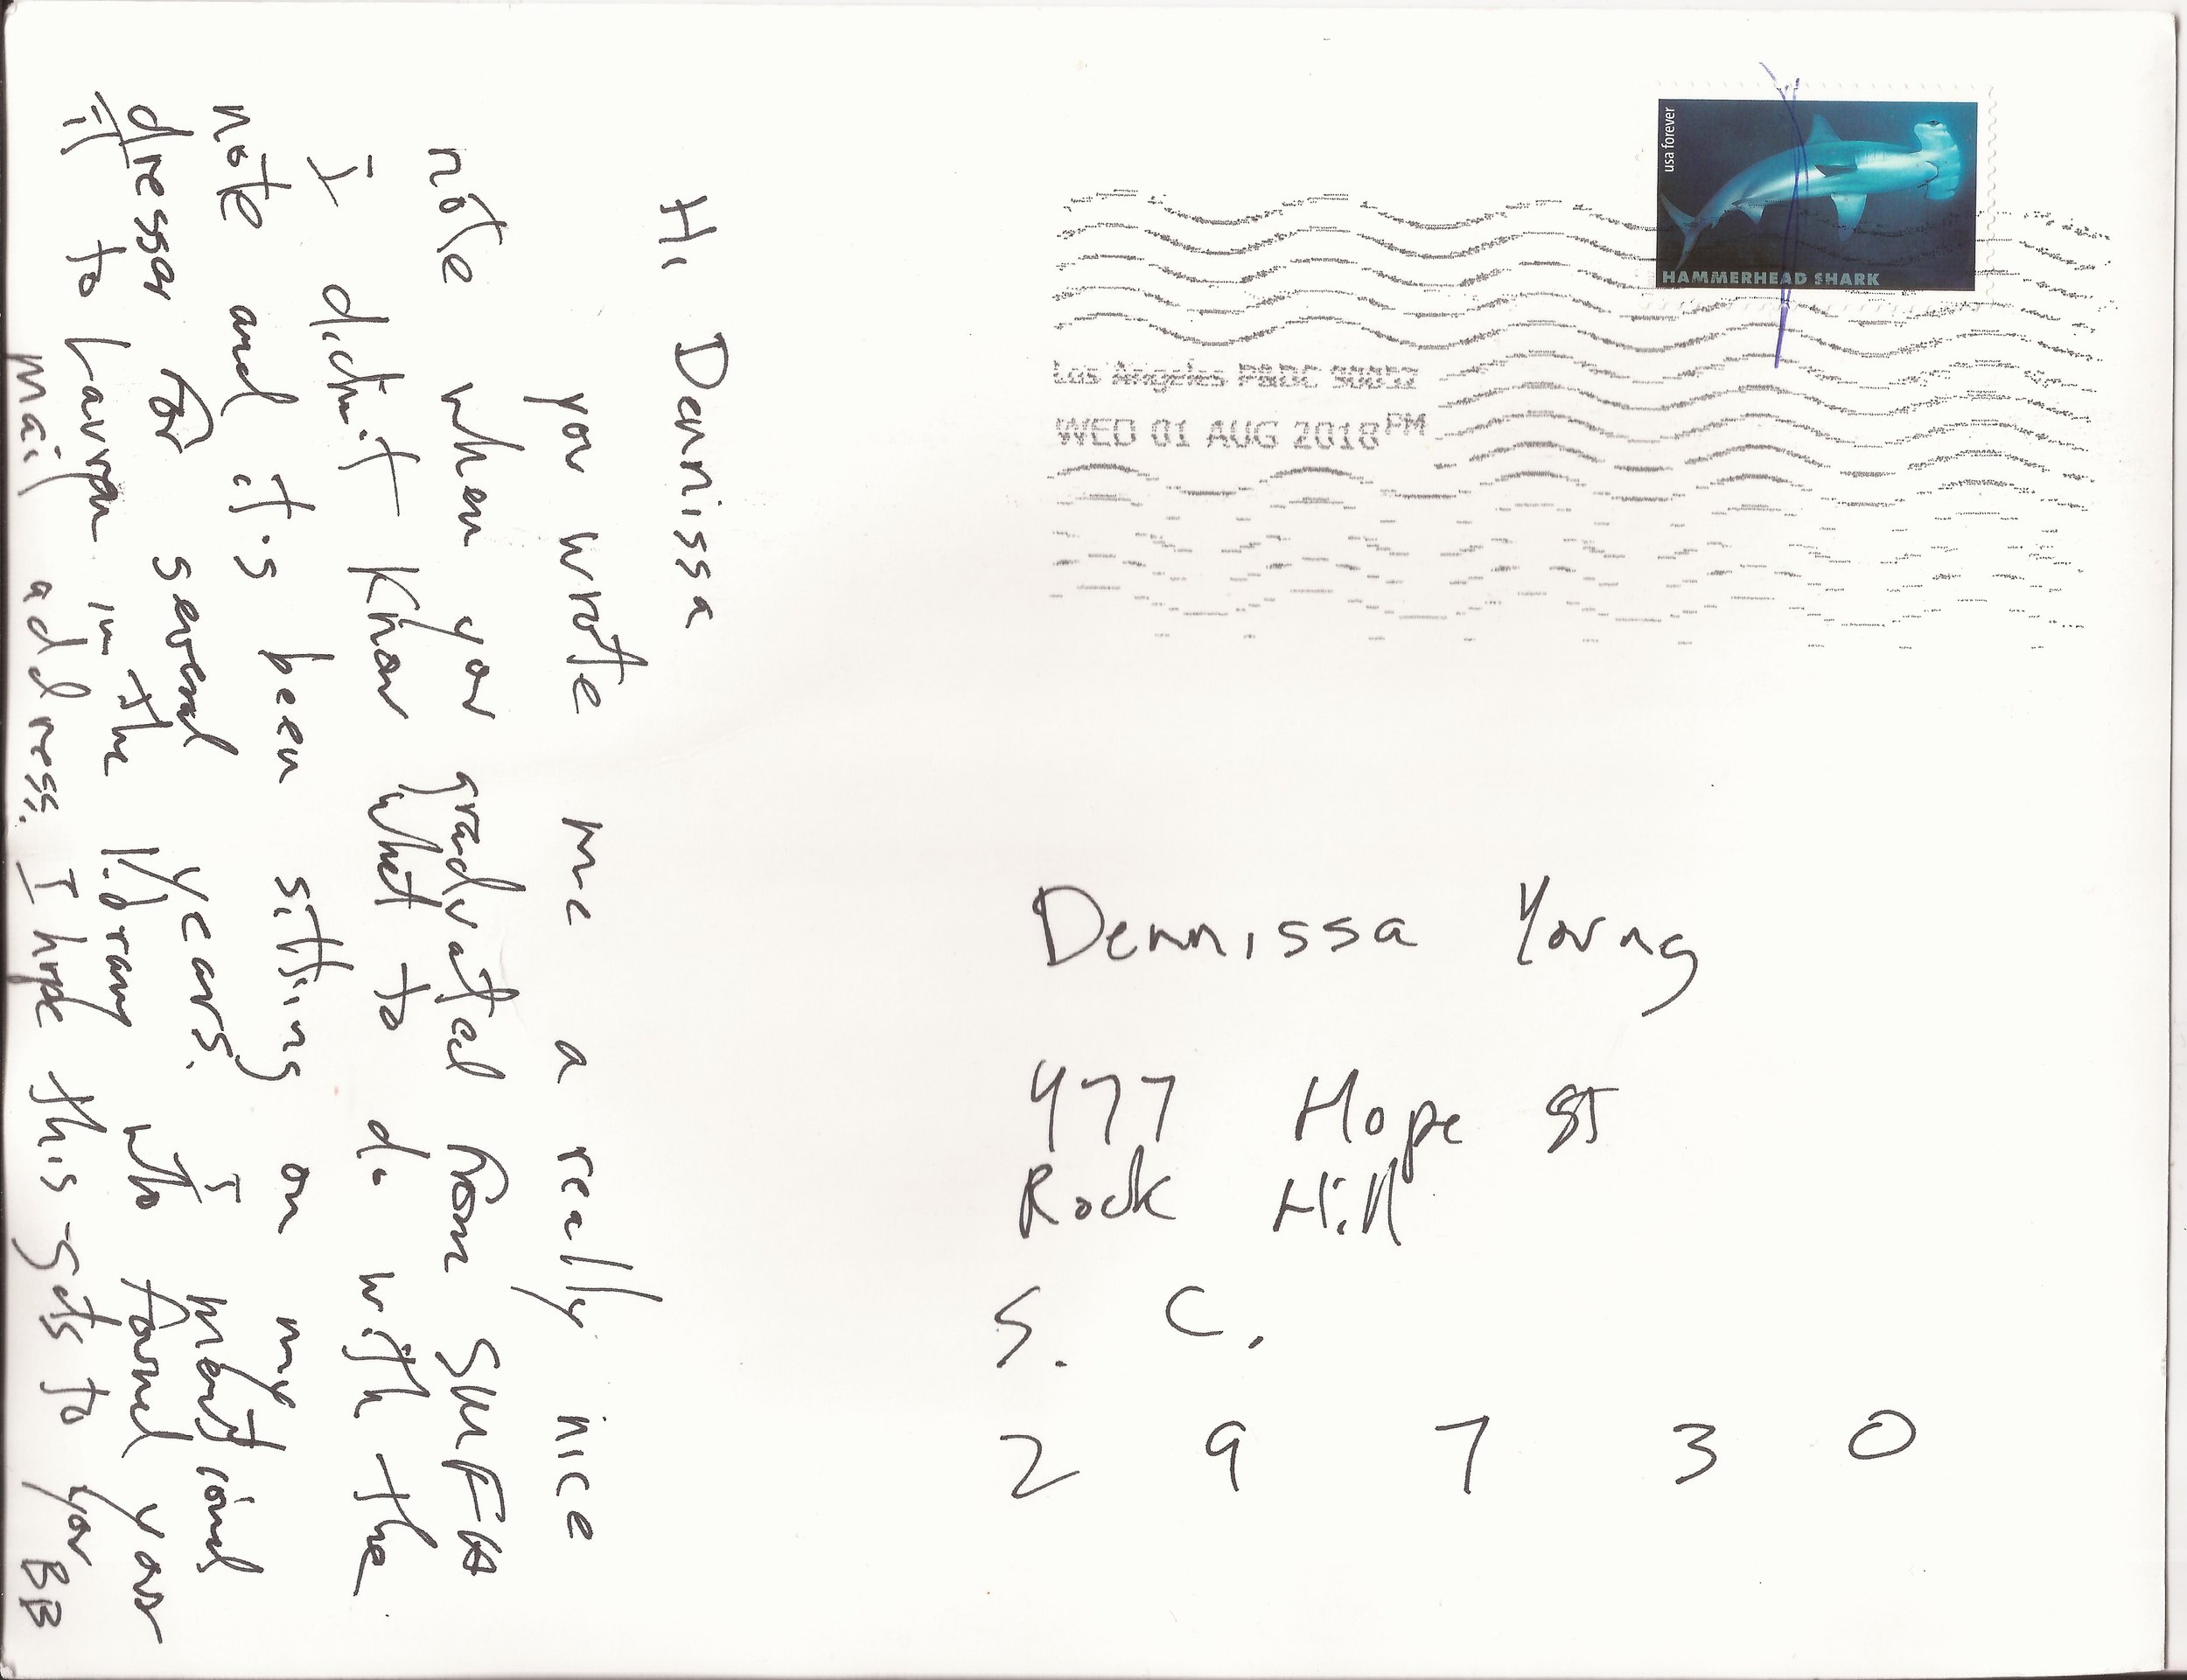 Hi Dennissa
you wrote me a really nice
note when you graduated from SMFA
I didn't know what to do with the
note and it's been sitting on my
dresser for several years. I mentioned
it to Lauren in the library who found your
mail address. I hope this gets to you BB
usa forever
HAMMERHEAD SHARK
Los Angeles P&DC 90052
WED 01 AUG 2018 PM
Dennissa Young
477 Hope St
Rock Hill
S. C.
2 9 7 3 0